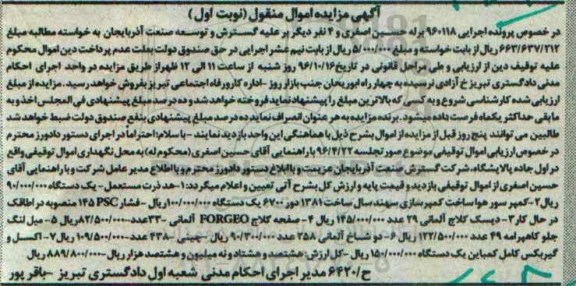 آگهی مزایده اموال منقول (نوبت اول)
در خصوص پرونده اجرایی ۹۶۰۱۱۸ برله حسین اصغری و ۴ نفر دیگر بر علیه گسترش و توسعه صنعت آذربایجان به خواسته مطالبه مبلغ
۶۶۳/۶۳۷/۲۱۲ ریال از بابت خواسته و مبلغ ۵/۰۰۰/۰۰۰ ریال از بابت نیم عشر اجرایی در حق صندوق دولت بعلت عدم پرداخت دین اموال محکوم
علیه توقیف پس از ارزیابی و طی مراحل قانونی در تاریخ ۹۶/۱۰/۱۶ روز شنبه از ساعت ۱۱ الی ۱۲ ظهر از طریق مزایده در واحد اجرای احکام
مدنی دادگستری تبریز خ آزادی نرسیده به چهارراه ابوریحان جنب بازار روز - اداره کار و رفاه اجتماعی تبریز بفروش خواهد رسید. مزایده از مبلغ
ارزیابی شده کارشناسی شروع و به کسی که بالاترین مبلغ را پیشنهاد نماید فروخته خواهد شد و ده درصد مبلغ پیشنهادی فی المجلس اخذ و به
مابقی حداکثر یکماه فرصت داده میشود. برنده مزایده به هر عنوان انصراف نماید ده درصد مبلغ پیشنهادی بنفع صندوق دولت ضبط خواهد شد
طالبین می توانند پنج روز قبل از مزایده از اموال بشرح ذیل با هماهنگی این واحد بازدید نمایند - با سلام؛ احتراماً در اجرای دستور دادورز محترم
در خصوص ارزیابی اموال توقیفی موضوع صورتجلسه ۹۶/۴/۲۲ با راهنمایی آقای حسین اصغری (محکوم له) به محل نگهداری اموال توقیفی واقع
در اول جاده پالایشگاه، شرکت گسترش صنعت آذربایجان عزیمت و با ابلاغ دستور دادورز محترم و با اطلاع مدیر عامل شرکت و با راهنمایی آقای
حسین اصغری از اموال توقیفی بازدید و قیمت پایه و ارزش کل بشرح آتی تعیین و اعلام میگردد: ۱- هد درت مستعمل - یک دستگاه ۹۰/۰۰۰/۰۰۰
ریال ۲- کمپرسور هوا ساخت کمپرسازی سهند سال ساخت ۱۳۸۱ دور ۶۷۰۰ یک دستگاه ۱۰۰/۰۰۰/۰۰۰ ریال - فشار ۱۴۵ PSC منصوبه در اطاقک
در حال کار ۳- دیسک کلاچ آلمانی ۲۹ عدد ۱۴۵/۰۰۰/۰۰۰ ریال ۴- صفحه کلاچ FORGEO آلمانی - ۳۳ عدد ۸۲/۵۰۰/۰۰۰ ریال ۵- میل لنگ
جلو کاهپرامه ۴۹ عدد ۱۲۲/۵۰۰/۰۰۰ ریال ۶- دو شاخ آلمانی ۲۵۸ عدد ۹۰/۳۰۰/۰۰۰ ریال - چینی - ۴۳۸ عدد ۱۰۹/۵۰۰/۰۰۰ ریال ۷- اکسل و
گیربکس کامل کمباین یک دستگاه ۱۵۰/۰۰۰/۰۰۰ ریال - کل ارزش: هشتصد و هشتاد و نه میلیون و هشتصد هزار ریال ۸۸۹/۸۰۰/۰۰۰ ریال
ح/۶۴۲۰ مدیر اجرای احکام مدنی شعبه اول دادگستری تبریز - باقر پور